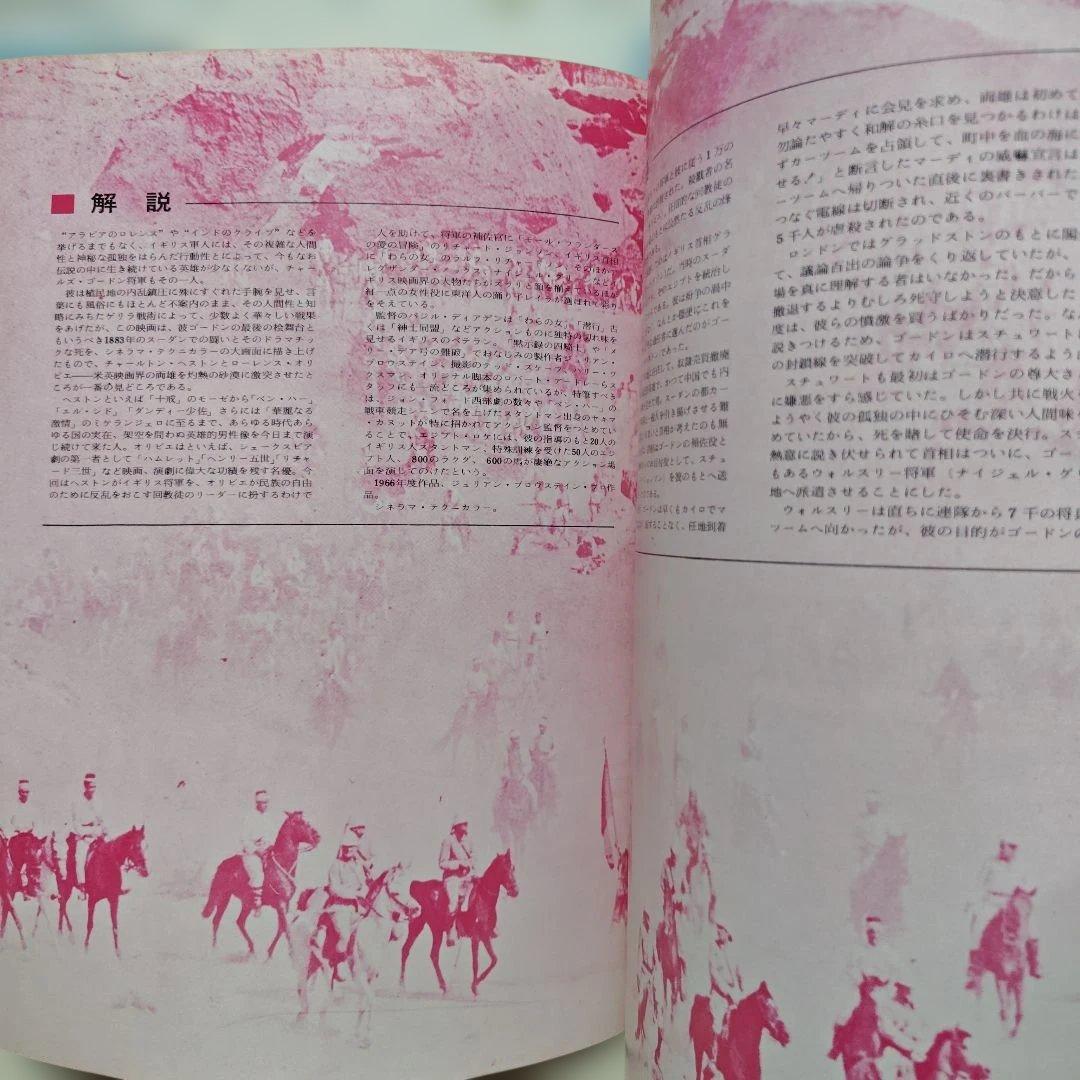 解説
“アラビアのロレンス”や“インドのクライヴ”などを
挙げるまでもなく、イギリス軍人には、その複雑な人間
性と神秘な孤独をはらんだ行動性とによって、今もなお
伝説の中に生き続けている英雄が少なくないが、チャー
ルズ・ゴードン将軍もその一人。
彼は植民地の内乱鎮圧に殊にすぐれた手腕を見せ、言
葉にも風俗にもほとんど不案内のまま、その人間性と知
略にみちたゲリラ戦術によって、少数よく華々しい戦果
をあげたが、この映画は、彼ゴードンの最後の桧舞台と
もいうべき1883年のスーダンでの闘いとそのドラマチッ
クな死を、シネラマ・テクニカラーの大画面に描き上げ
たもので、チャールトン・ヘストンとローレンス・オリ
ビエ——米英映画界の両雄を灼熱の砂漠に激突させたと
ころが一番の見どころである。
ヘストンといえば「十戒」のモーゼから「ベン・ハー」
「エル・シド」「ダンディー少佐」さらには「華麗なる
激情」のミケランジェロに至るまで、あらゆる時代あら
ゆる国の実在、架空を問わぬ英雄的男性像を今日まで演
じ続けて来た人。オリビエはといえば、シェークスピア
劇の第一者として「ハムレット」「ヘンリー五世」「リチャ
ード三世」など映画、演劇に偉大な功績を残す名優。今
回はヘストンがイギリス将軍を、オリビエが民族の自由
のために反乱をおこす回教徒のリーダーに扮するわけで
二人を助けて、将軍の補佐官に「モール・フランダース
の愛の冒険」のリチャード・ジョンソン、イギリス首相
に「わらの女」のラルフ・リチャードソン、そのほかア
レグザンダー・ノックス、ナイジェル・グリーンなどイ
ギリス映画界の人物たちがズラリと顔を揃えているほか
紅一点の女性役に東洋人の踊り子レイラが選ばれて彩り
をそえている。
監督のバジル・ディアデンは「わらの女」「潜行」古
くは「紳士同盟」などアクションものに独特の切れ味を
見せるイギリスのベテラン。「黙示録の四騎士」や「メ
リー・デア号の難破」でおなじみの製作者ジュリアン・
ブロウステイン、撮影のテッド・スケーフ、ハリー・ワ
クスマン、オリジナル脚本のロバート・アードレーらス
タッフにも一流どころが集められているが、特筆すべき
は、ジョン・フォード西部劇の数々や「ベン・ハー」の
戦車競走シーンで名を上げたスタントマン出身のヤキマ
・カヌットが特に招かれてアクション監督をつとめてい
ることで、エジプト・ロケには、彼の指導のもと20人の
イギリス人スタントマン、特殊訓練を受けた50人のエジ
プト人、800のラクダ、600の馬が凄絶なアクション場
面を演じてのけたという。
1966年度作品、ジュリアン・ブロウステイン・プロ作
品。
シネラマ・テクニカラー。
早々マーディに会見を求め、両雄は初めて
勿論たやすく和解の糸口を見つかるわけは
ずカーツームを占領して、町中を血の海に
せる！」と断言したマーディの威嚇宣言は
ーツームへ帰りついた直後に裏書きされた
つなぐ電線は切断され、近くのバーバーで
5千人が虐殺されたのである。
ロンドンではグラッドストンのもとに閣
て、議論百出の論争をくり返していたが、
場を真に理解する者はいなかった。だから
撤退するよりむしろ死守しようと決意した
度は、彼らの憤激を買うばかりだった。な
説きつけるため、ゴードンはスチュワート
の封鎖線を突破してカイロへ潜行するよう
スチュワートも最初はゴードンの尊大さ
に嫌悪をすら感じていた。しかし共に戦火
ようやく彼の孤独の中にひそむ深い人間味
めていたから、死を賭して使命を決行。ス
熱意に説き伏せられて首相はついに、ゴー
もあるウォルスリー将軍（ナイジェル・グ
地へ派遣させることにした。
ウォルスリーは直ちに連隊から7千の将兵
ツームへ向かったが、彼の目的がゴードンの